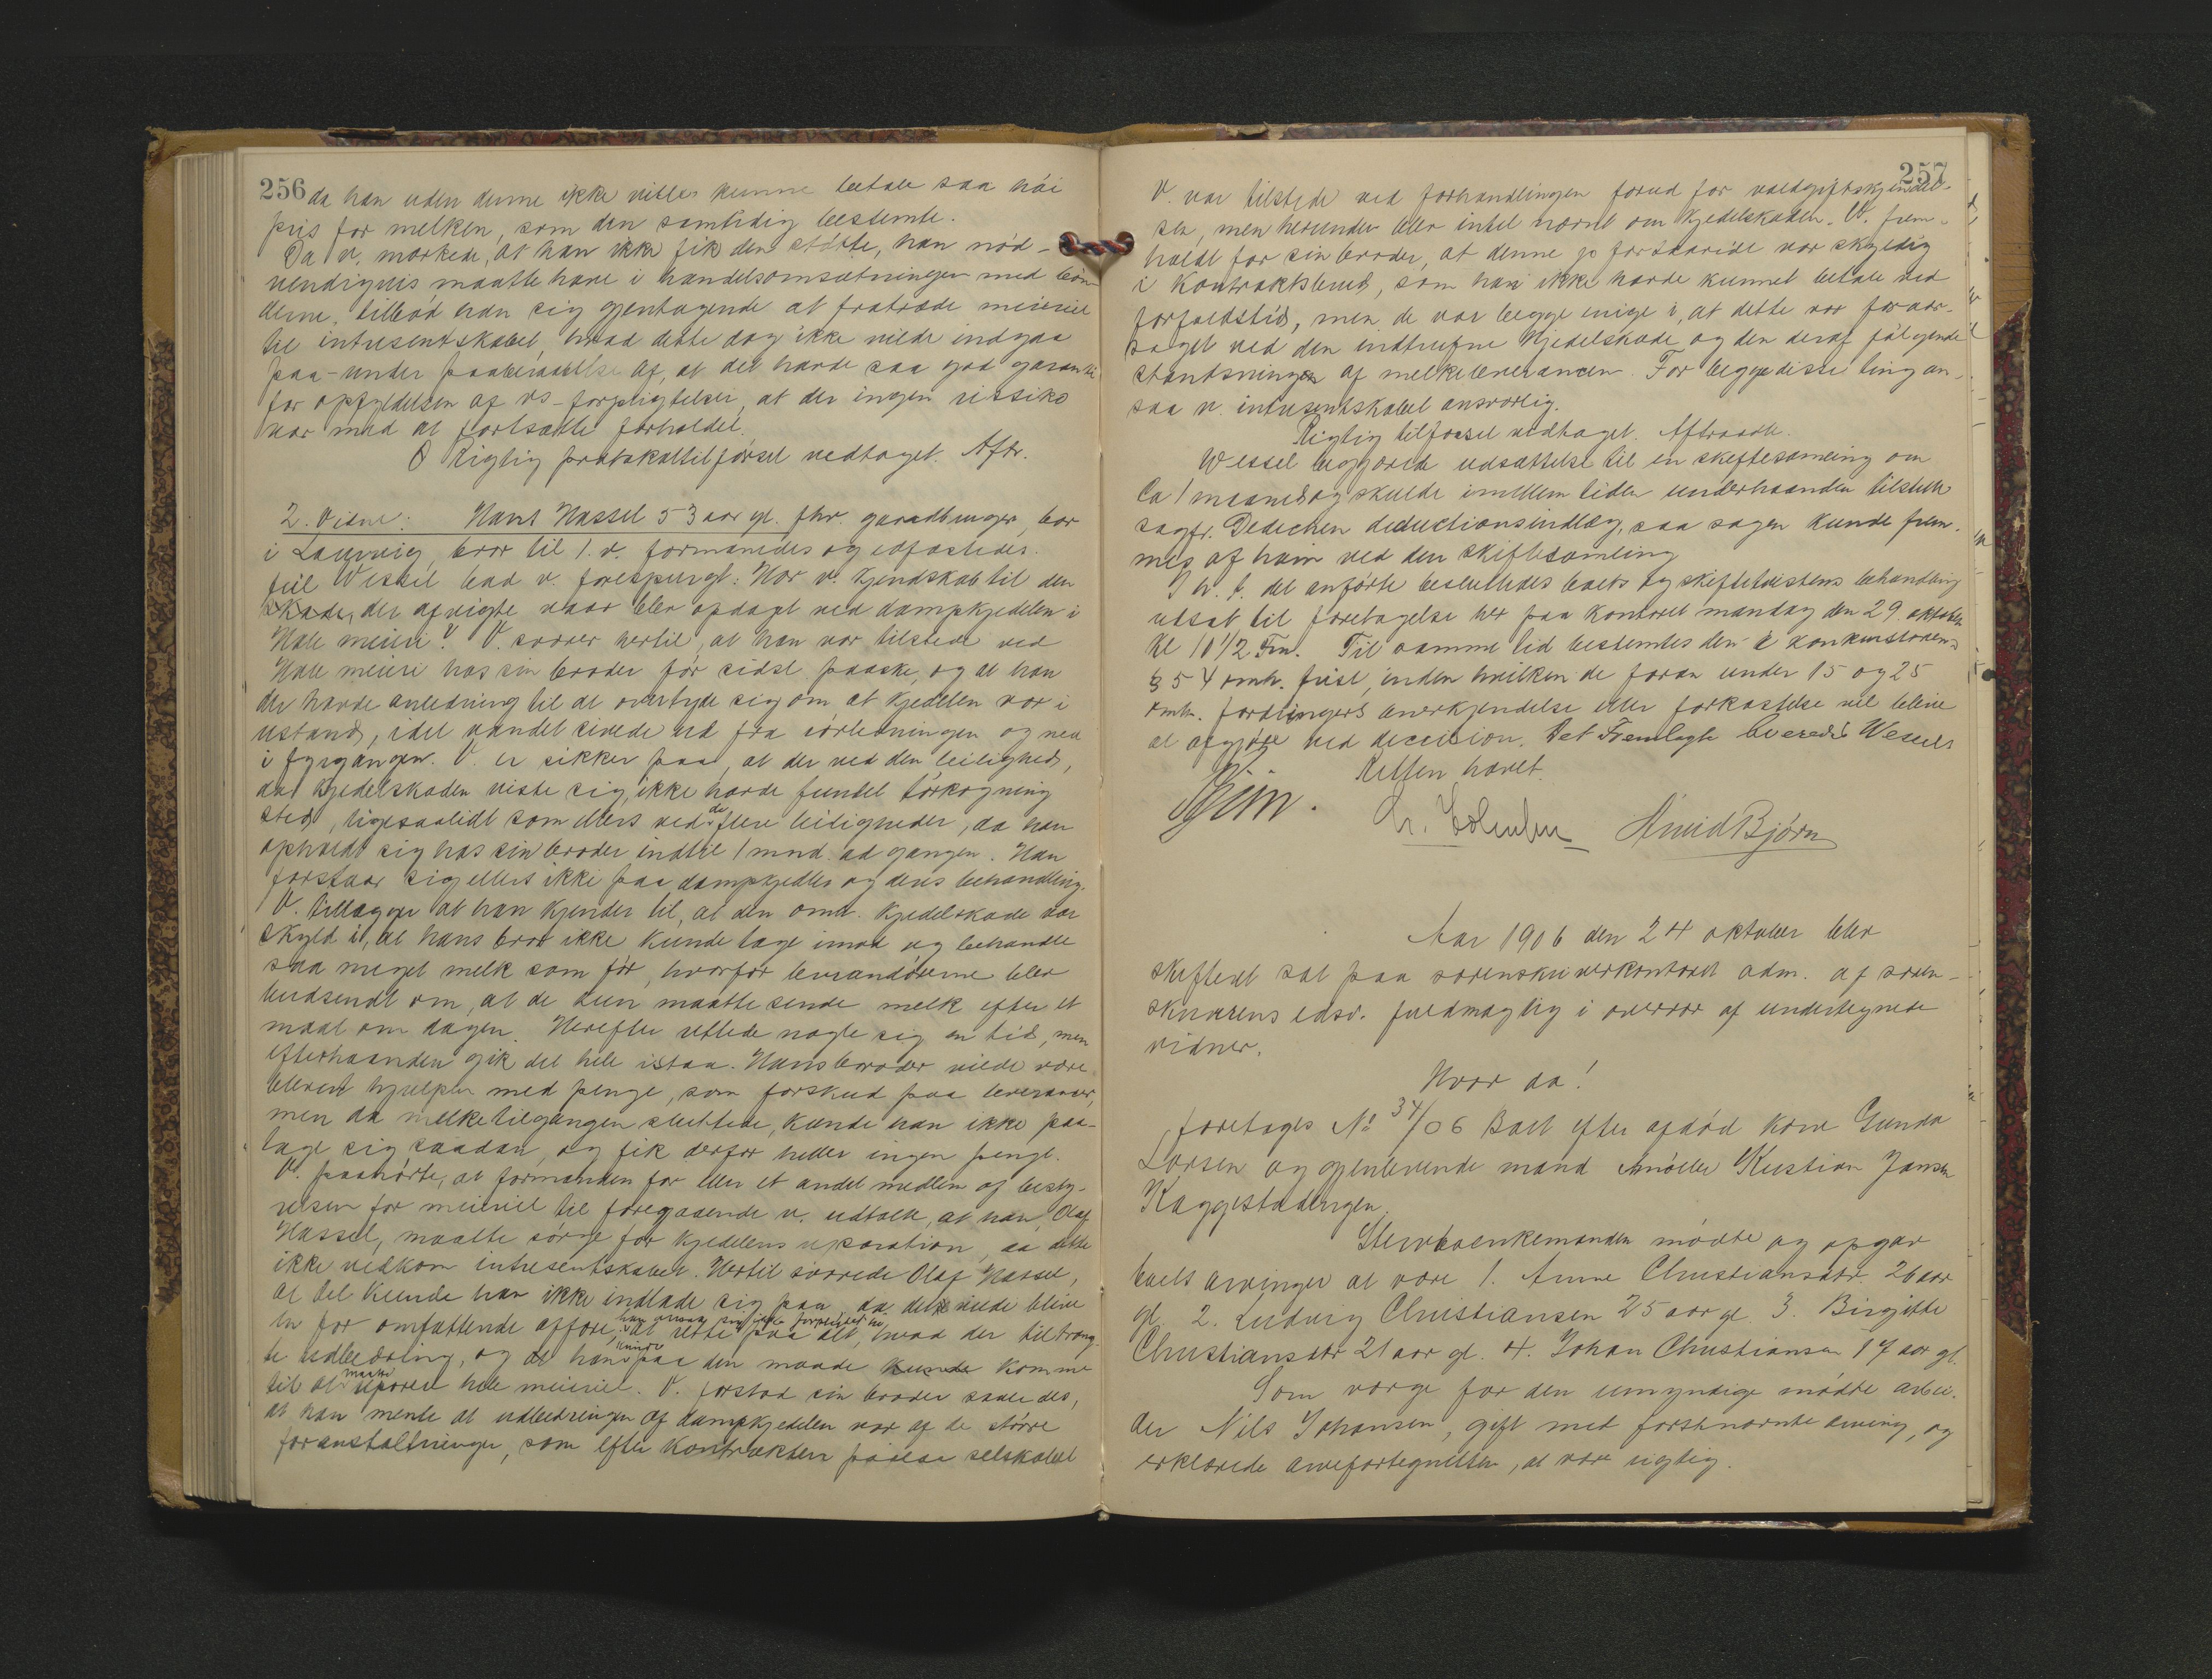 256
da han uden denne ikke vilde kunne betale saa høi
pris for melken, som den samtidig bestemte.
Da v. mærkede, at han ikke fik den støtte, han nød-
vendigvis maatte have i handelsomsætningen med bøn
derne, tilbød han sig gjentagende at fratræde meieriet
til intresentskabet, hvad dette dog ikke vilde indgaa
paa under paaberaabelse af, at det havde saa god garanti
for opfyldelsen af vs forpligtelser, at der ingen rissiko
var med at fortsætte forholdet.
Rigtig protokoltilførsel vedtaget. Aftr.
2. Vidne: Hans Hassel 53 aar gl. fhv. gaardbruger, bor
i Laurvig, bror til 1. v. formanedes og edfæstedes.
Wessel bad v. forespurgt: Har v. kjendskab til den
skade, der afvigte vaar blev opdaget ved dampkjedelen i
Hale meieri? V. svarer hertil, at han var tilstede ved
Hale meieri hos sin broder før sidst paaske, og at han
der havde anledning til at overtyde sig om at kjedelen var i
ustand, idet vandet sivede ud fra rørledningen og ned
i fyrgangen. V. er sikker paa, at der ved den leilighed,
da kjedelskaden viste sig, ikke havde fundet tørkogning
sted, ligesaalidt som ellers ved de flere leiligheder, da han
opholdt sig hos sin broder indtil 1 mnd. ad gangen. Han
forstaar sig ellers ikke paa dampkjedler og deres behandling.
V. tillægger at han kjender til, at den omh. kjedelskade var
skyld i, at hans bror ikke kunde tage imod og behandle
saa meget melk som før, hvorfor leverandørerne blev
budsendt om, at de kun maatte sende melk efter et
maal om dagen. Herefter rettede nogle sig en tid, men
efterhaanden gik det hele istaa. Hans broder vilde være
blevet hjulpen med penge, som forskud paa leverancer,
men da melketilgangen sluttede, kunde han ikke paa-
tage sig saadan, og fik derfor heller ingen penge.
V. paahørte, at formanden for eller et andet medlem af besty-
relsen for meieriet til foregaaende v. udtalte, at han, Olaf
Hassel, maatte sørge for kjedelens reparation, da dette
ikke vedkom intresentskabet. Hertil svarede Olaf Hassel,
at det kunde han ikke indlade sig paa, da det vilde blive
en for omfattende affære, han ansaa sig ikke forpligtet til, at rette paa alt, hvad der tiltræng-
te udbedring, og at han kunde paa den maade kunde komme
til at maatte reparere hele meieriet. V. forstod sin broder saaledes,
at han mente at udbedringen af dampkjedelen var af de større
foranstaltninger, som efter kontrakten paalaa selskabet
257
V. var tilstede ved forhandlingen forud for voldgiftskjendel-
sen, men herunder blev intet nævnt om kjedelskaden. V. frem-
holdt for sin broder, at denne jo forstavidt var skyldig
i Kontraktsbrud, som han ikke havde kunnet betale ved
forfaldstid, men de var begge enige i, at dette var foraar-
saget ved den indtrufne kjedelskade og den deraf følgende
standsningen af melkeleverancen. For begge disse ting an-
saa v. intresentskabet ansvarlig.
Rigtig tilførsel vedtaget. Aftraadte.
Wessel begjærede udsættelse til en skiftesamling om
Ca 1 maaned og skulde imellem tiden underhaanden tilstille
sagfr. Dedechen deductionsindlæg, saa sagen kunde frem-
mes af ham ved den skiftesamling
I h. t. det anførte besluttedes boets og skiftetvistens behandling
udsat til foretagelse her paa kontoret mandag den 29. oktober
kl 10 1/2 Fm. Til samme tid bestemtes den i konkurslovens
§ 54 omh. frist, inden hvilken de foran under 15 og 25
omh. fordringers anerkjendelse eller forkastelse vil blive
at afgjøre ved decision. Det Fremlagte leveredes Wessel
Retten hævet.
Arvid Bjørn
Aar 1906 den 24 oktober blev
skifteret sat paa sorenskriverkontoret adm. af soren-
skriverens edsv. fuldmægtig i overvær af undertegnede
vidner.
Hvor da!
foretages No 34/06 Boet efter afdød kone Gunda
Larsen og gjenlevende mand møller Kristian Jansen
Kaggestadengen.
Sterbboenkemanden mødte og opgav
boets arvinger at være 1. Anne Christiansdtr. 26 aar
gl. 2. Ludvig Christiansen 25 aar gl. 3. Birgitte
Christiansdtr 21 aar gl. 4. Johan Christiansen 17 aar gl.
Som værge for den umyndige mødte arbei-
der Nils Johansen, gift med førstnævnte arving, og
erklærede arvefortegnelsen, at være rigtig.